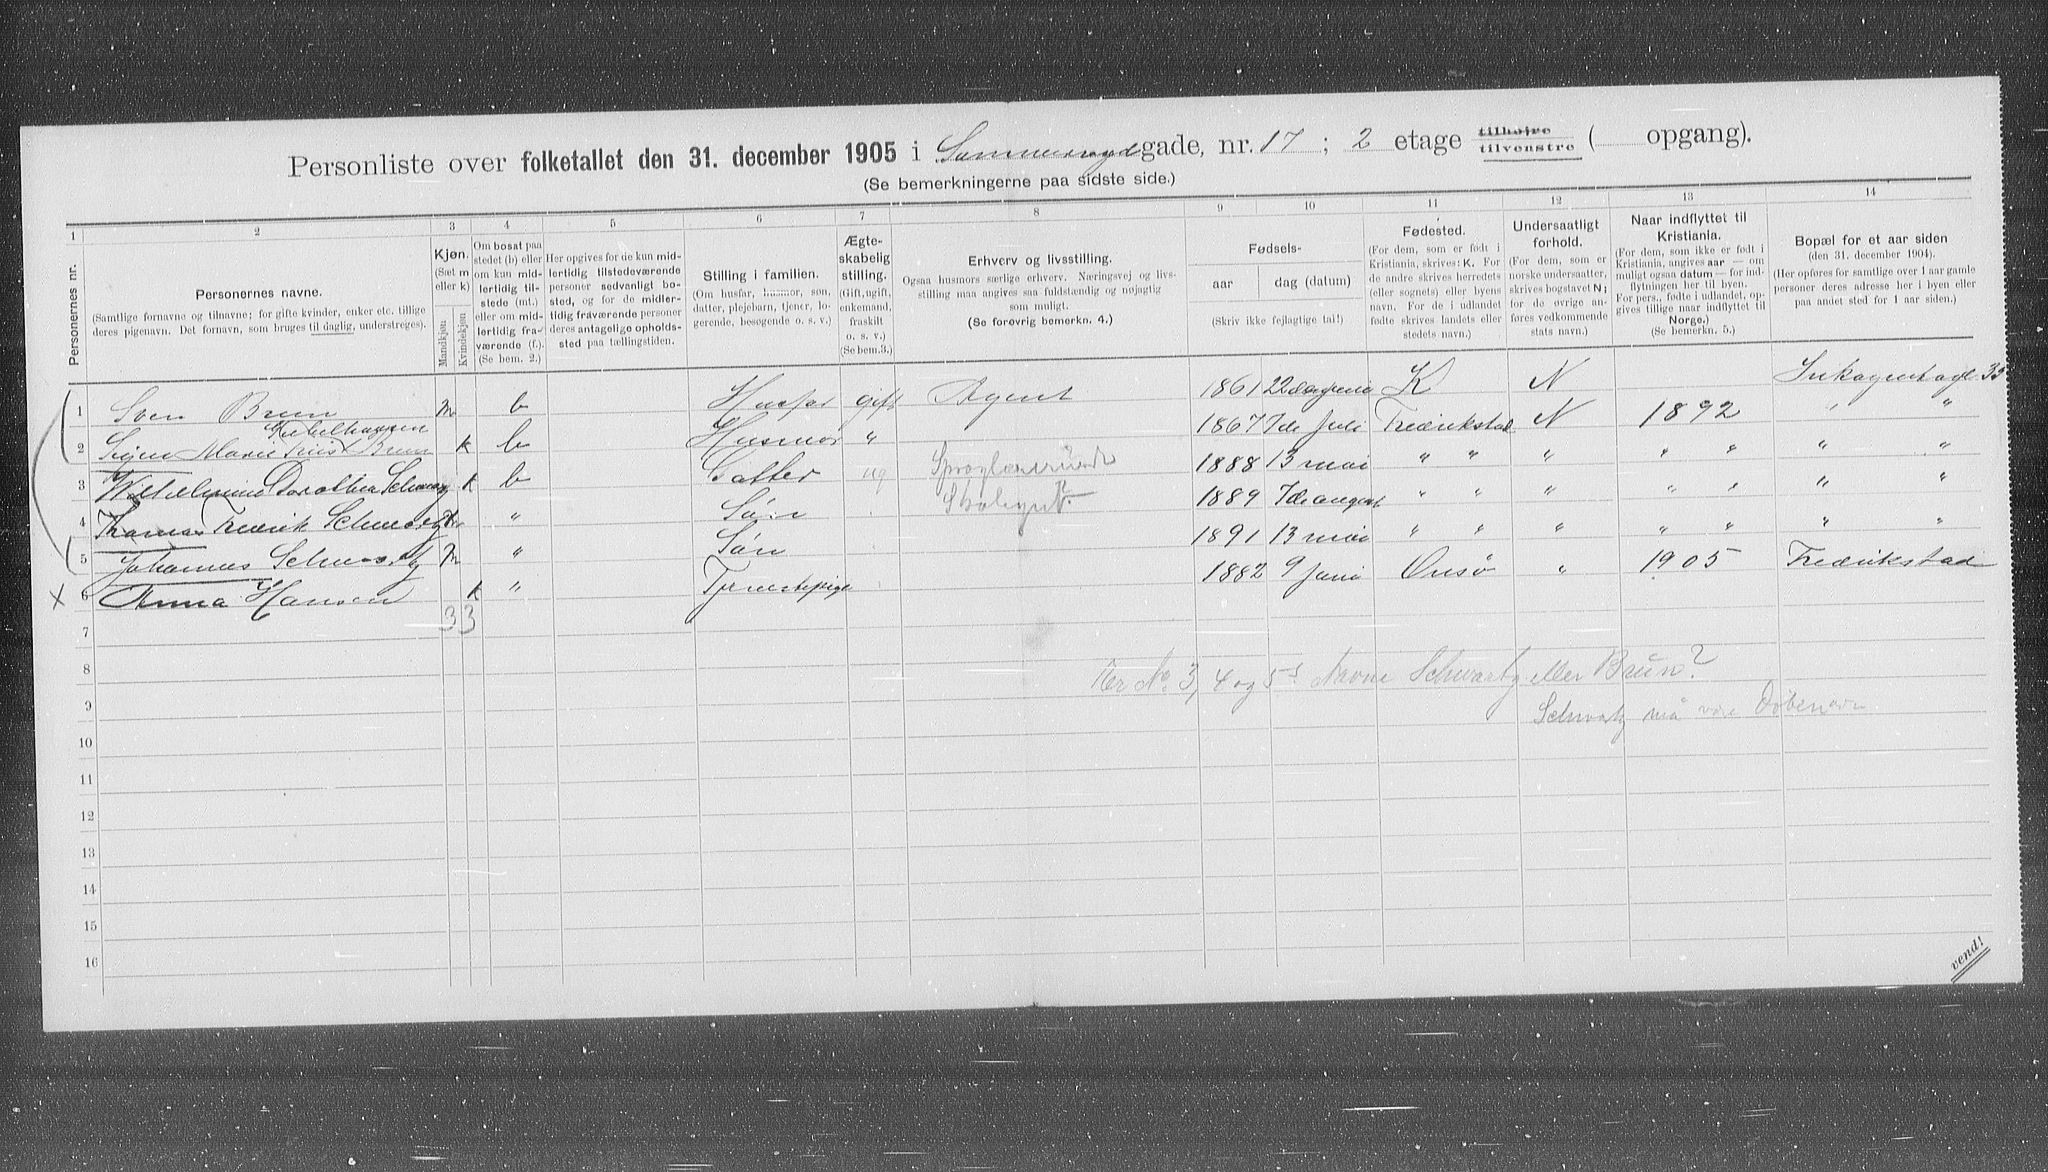 Personliste over folketallet den 31. december 1905 i gade, nr. 17 ; 2 etage tilhøjre tilvenstre ( opgang).
(Se bemerkningerne paa sidste side.)
1 2 3 4 5 6 7 8 9 10 11 12 13 14
Personernes nr.
Personernes navne.
(Samtlige fornavne og tilnavne; for gifte kvinder, enker etc. tillige
deres pigenavn. Det fornavn, som bruges til daglig, understreges).
Kjøn.
(Sæt m
eller k)
Mandkjøn
Kvindekjøn
Om bosat paa
stedet (b) eller
om kun mid-
lertidig til-
stede (mt.)
eller om mid-
lertidig fra-
værende (f.).
(Se bem. 2.)
Her opgives for de kun mid-
lertidig tilstedeværende
personer sedvanligt bo-
sted, og for de midler-
tidig fraværende personer
deres antagelige opholds-
sted paa tællingstiden.
Stilling i familien.
(Om husfar, husmor, søn,
datter, plejebarn, tjener, lo-
gerende, besøgende o. s. v.)
Ægte-
skabelig
stilling.
(Gift, ugift,
enkemand,
fraskilt
o. s. v.)
(Se bem. 3.)
Erhverv og livsstilling.
Ogsaa husmors særlige erhverv. Næringsvej og livs-
stilling maa angives saa fuldstændig og nøjagtig
som muligt.
(Se forøvrig bemerkn. 4.)
Fødsels-
aar dag (datum)
(Skriv ikke fejlagtige tal!)
Fødested.
(For dem, som er født i
Kristiania, skrives: K. For
de andre skrives herredets
(eller sognets) eller byens
navn. For de i udlandet
fødte skrives landets eller
stedets navn.)
Undersaatligt
forhold.
(For dem, som er
norske undersaatter,
skrives bogstavet N;
for de øvrige an-
føres vedkommende
stats navn.)
Naar indflyttet til
Kristiania.
(For dem, som ikke er født i
Kristiania, angives aar — om
muligt ogsaa datum — for ind-
flytningen her til byen.
For pers., fødte i udlandet, op-
gives tillige naar indflyttet til
Norge.)
(Se bemerkn. 5.)
Bopæl for et aar siden
(den 31. december 1904).
(Her opføres for samtlige over 1 aar gamle
personer deres adresse her i byen eller
paa andet sted for 1 aar siden.)
1 Sven Brun m b Husfar gift Agent 1861 K N 33
2 Marie Brun k b Husmor " 1867 7de Juli Fredrikstad N 1892 "
3 Dorothea k b Datter ug 1888 13 mai " " " " " " "
4 Thomas Fredrik " Søn 1889 7de august " " " " " " "
5 Johannes m " Søn 1891 13 mai " " " " " " "
X 6 Anna Hansen k " Tjenestepige 1882 9 Onsø " 1905 Fredrikstad
7 3 3
8 Er No 3, 4 og 5s Navne Schwartz eller Brun?
9 Schwatz må være Døbenavn
10
11
12
13
14
15
16
vend!